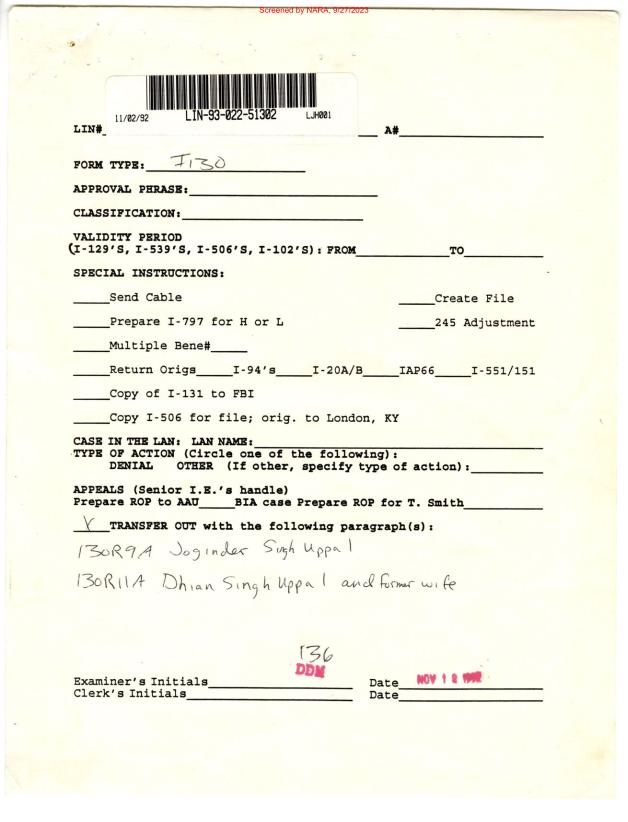 Screened by NARA, 9/27/2023
11/02/92 LIN-93-022-51302 LJH001
LIN#_ A#
FORM TYPE: I130
APPROVAL PHRASE:
CLASSIFICATION:
VALIDITY PERIOD
(I-129'S, I-539'S, I-506'S, I-102'S): FROM TO
SPECIAL INSTRUCTIONS:
Send Cable Create File
Prepare I-797 for H or L 245 Adjustment
Multiple Bene#
Return Origs I-94's I-20A/B IAP66 I-551/151
Copy of I-131 to FBI
Copy I-506 for file; orig. to London, KY
CASE IN THE LAN: LAN NAME:
TYPE OF ACTION (Circle one of the following):
DENIAL OTHER (If other, specify type of action):
APPEALS (Senior I.E.'s handle)
Prepare ROP to AAU BIA case Prepare ROP for T. Smith
TRANSFER OUT with the following paragraph(s):
130R9A Joginder Singh Uppal
130R11A Dhian Singh Uppal and former wife
136
DDM
Examiner's Initials Date NOV 12 1992
Clerk's Initials Date